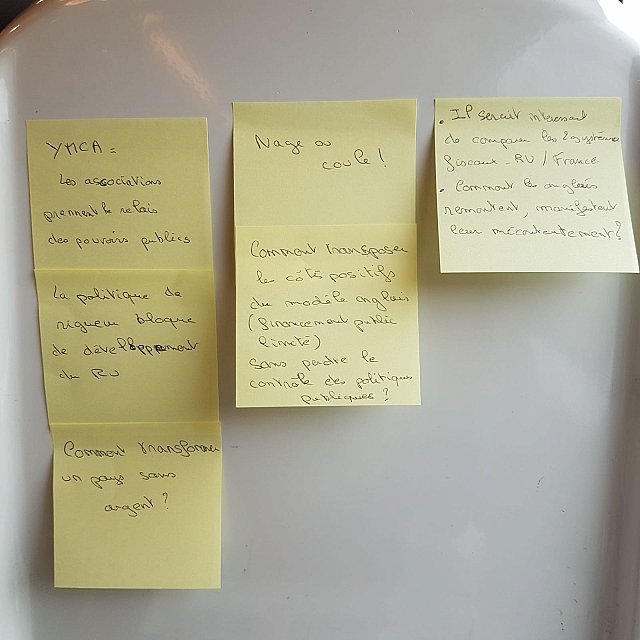 YMCA =
Les associations
prennent le relais
des pouvoirs publics
La politique de
rigueur bloque
de développement
du RU
Comment transformer
un pays sans
argent ?
Nage ou
coule !
Comment transposer
le côté positifs
du modèle anglais
(financement public
limité)
sans perdre le
controle des politiques
publiques ?
. Il serait intéressant
de comparer les 2 systèmes
fiscaux - RU / France
. Comment les anglais
remontent, manifestent
leur mécontentement ?